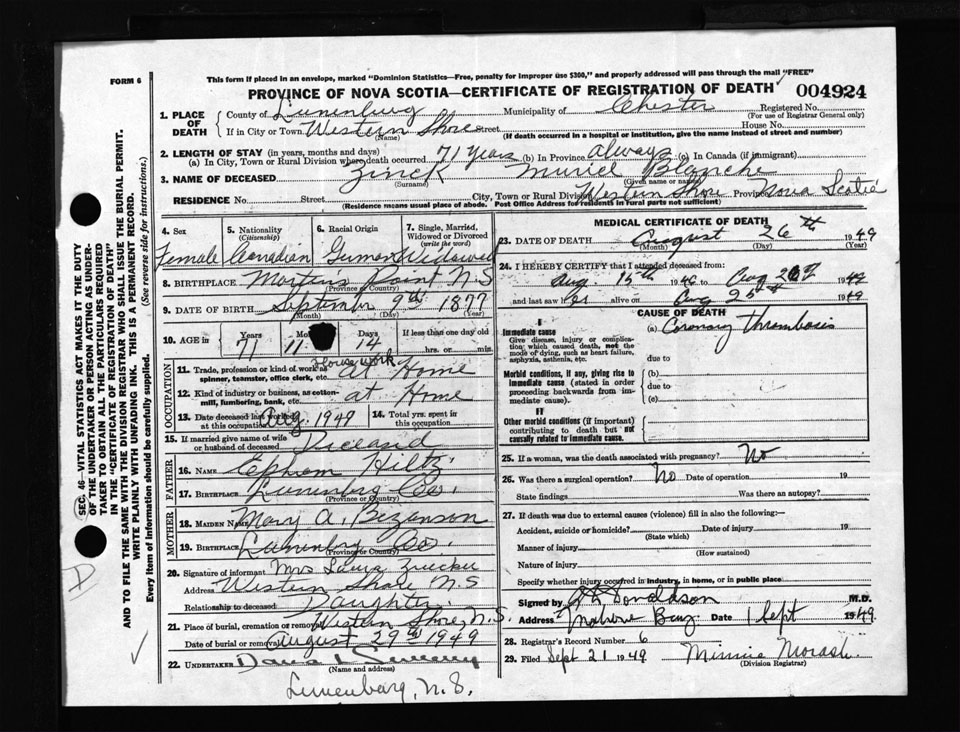 FORM 6
This form if placed in an envelope, marked "Dominion Statistics—Free, penalty for improper use $300," and properly addressed will pass through the mail "FREE"
PROVINCE OF NOVA SCOTIA—CERTIFICATE OF REGISTRATION OF DEATH
004924
1. PLACE OF DEATH
County of Lunenburg Municipality of Chester Registered No.
(For use of Registrar General only)
If in City or Town Western Shore Street House No.
(Name) (If death occurred in a hospital or institution, give the name instead of street and number)
2. LENGTH OF STAY (in years, months and days)
(a) In City, Town or Rural Division where death occurred 71 years (b) In Province always (c) In Canada (if immigrant)
3. NAME OF DECEASED Zinck Muriel Blanche
(Surname) (Given name or names)
RESIDENCE No. Street City, Town or Rural Division Western Shore Province Nova Scotia
(Residence means usual place of abode. Post Office Address for residents in rural parts not sufficient)
4. Sex 5. Nationality (Citizenship) 6. Racial Origin 7. Single, Married, Widowed or Divorced (write the word)
Female Canadian German Widowed
8. BIRTHPLACE Martin's Point N.S
(Province or Country)
9. DATE OF BIRTH September 9th 1877
(Month) (Day) (Year)
10. AGE in Years Months Days If less than one day old
71 11 14 hrs. or min.
OCCUPATION
11. Trade, profession or kind of work as spinner, teamster, office clerk, etc. House work at Home
12. Kind of industry or business, as cotton-mill, lumbering, bank, etc. at Home
13. Date deceased last worked at this occupation Aug. 1949 14. Total yrs. spent in this occupation
15. If married give name of wife or husband of deceased Diceasd
FATHER
16. NAME Ephram Hiltz
17. BIRTHPLACE Lunenbrg Co.
(Province or Country)
MOTHER
18. MAIDEN NAME Mary A. Bezanson
19. BIRTHPLACE Lunenbrg Co.
(Province or Country)
20. Signature of informant Mrs
Address Western Shore N.S
Relationship to deceased Daughter
21. Place of burial, cremation or removal Western Shore, N.S.
Date of burial or removal August 29th 1949
22. UNDERTAKER
(Name and address)
Lunenburg, N.S.
MEDICAL CERTIFICATE OF DEATH
23. DATE OF DEATH August 26th 1949
(Month) (Day) (Year)
24. I HEREBY CERTIFY that I attended deceased from:
Aug. 15th 1946 to Aug 26th 1949
and last saw her alive on Aug 25th 1949
CAUSE OF DEATH
I
Immediate cause (a) Coronary Thrombosis
Give disease, injury or complication which caused death, not the mode of dying, such as heart failure, asphyxia, asthenia, etc. due to
Morbid conditions, if any, giving rise to immediate cause (stated in order proceeding backwards from immediate cause). (b)
due to
(c)
II
Other morbid conditions (if important) contributing to death but not causally related to immediate cause.
25. If a woman, was the death associated with pregnancy? No
26. Was there a surgical operation? No Date of operation 19
State findings Was there an autopsy?
27. If death was due to external causes (violence) fill in also the following:—
Accident, suicide or homicide? Date of injury 19
(State which)
Manner of injury
(How sustained)
Nature of injury
Specify whether injury occurred in industry, in home, or in public place
Signed by Donaldson M.D.
Address Mahone Bay Date 1 Sept 1949
28. Registrar's Record Number 6
29. Filed Sept 21 1949 Minnie Morash
(Division Registrar)
SEC. 46—VITAL STATISTICS ACT MAKES IT THE DUTY
OF THE UNDERTAKER OR PERSON ACTING AS UNDER-
TAKER TO OBTAIN ALL THE PARTICULARS REQUIRED
IN THE "CERTIFICATE OF REGISTRATION OF DEATH"
AND TO FILE THE SAME WITH THE DIVISION REGISTRAR WHO SHALL ISSUE THE BURIAL PERMIT.
WRITE PLAINLY WITH UNFADING INK. THIS IS A PERMANENT RECORD.
Every item of information should be carefully supplied. (See reverse side for instructions.)